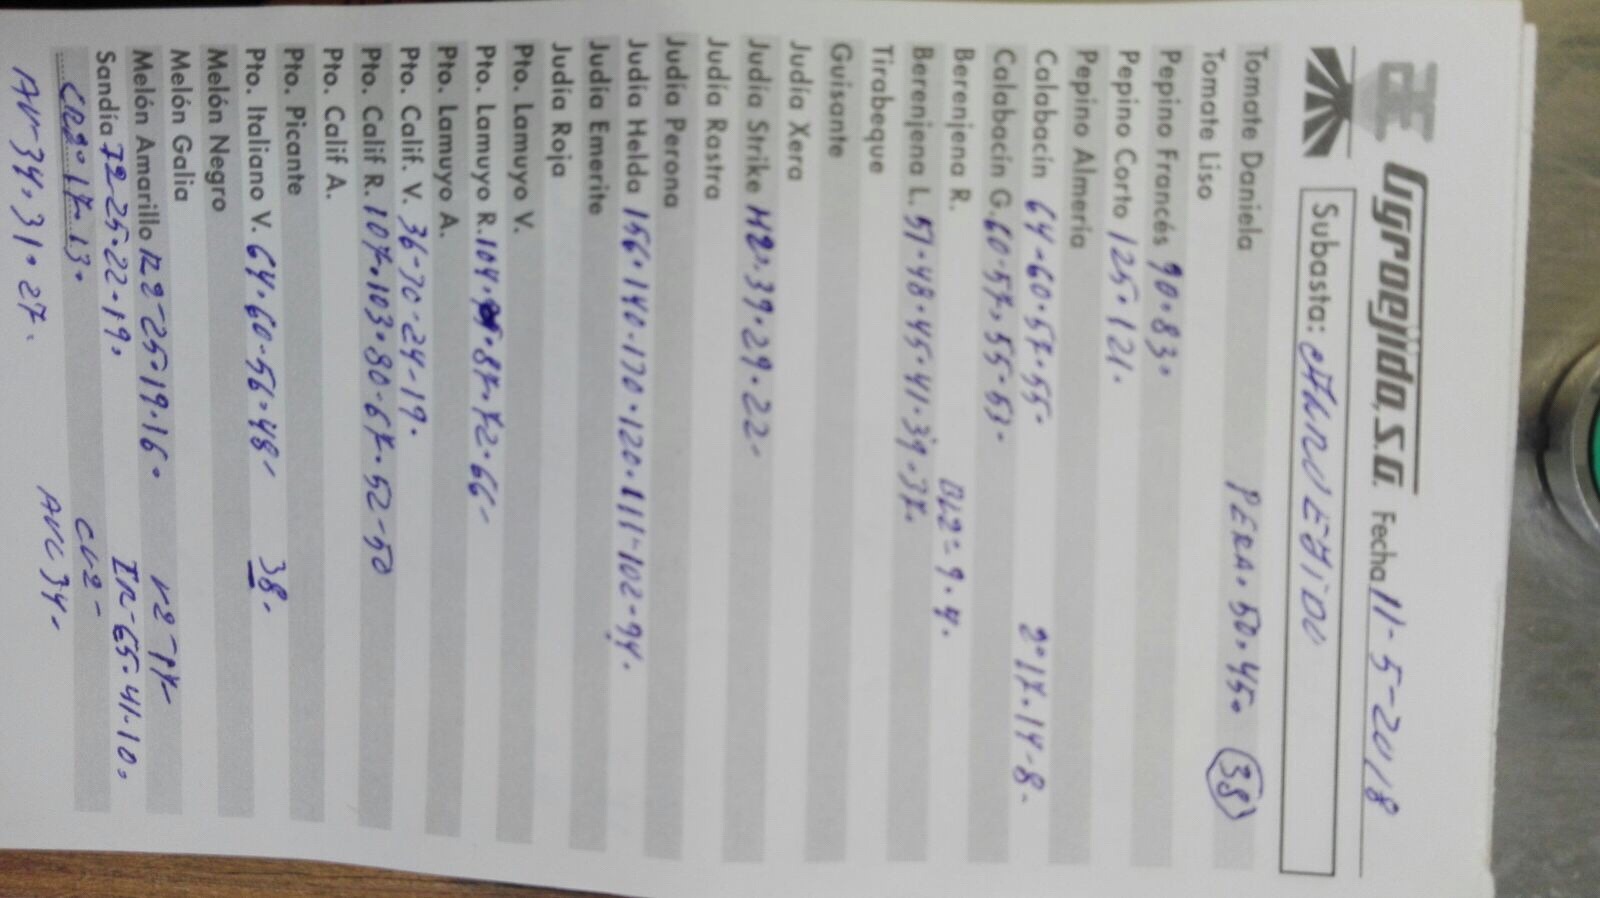 Agroejido, S.A. Fecha 11-5-2018
Subasta: AGRUPAEJIDO
Tomate Daniela PERA. 50. 45. 38
Tomate Liso
Pepino Francés 90. 83.
Pepino Corto 125. 121.
Pepino Almería
Calabacín 64-60-57-55. 2º 17. 14-8.
Calabacín G. 60-57-55-53.
Berenjena R. BL2= 9. 4.
Berenjena L. 51. 48. 45. 41. 39. 37.
Tirabeque
Guisante
Judía Xera
Judía Strike M2. 39. 29. 22.
Judía Rastra
Judía Perona
Judía Helda 156. 140. 170. 120. 111-102-94.
Judía Emerite
Judía Roja
Pto. Lamuyo V.
Pto. Lamuyo R. 104. 87. 72. 66-
Pto. Lamuyo A.
Pto. Calif. V. 36-30-24-19.
Pto. Calif R. 107. 103. 80. 67. 52-50
Pto. Calif A.
Pto. Picante
Pto. Italiano V. 64. 60-56. 48- 38.
Melón Negro
Melón Galia
Melón Amarillo R2-25. 19. 16. V2-17-
Sandía 72-25. 22. 19. IR-65. 41. 10.
CR2. 17. 13. CV2-
AVR 34. 31. 27. AVC 34.